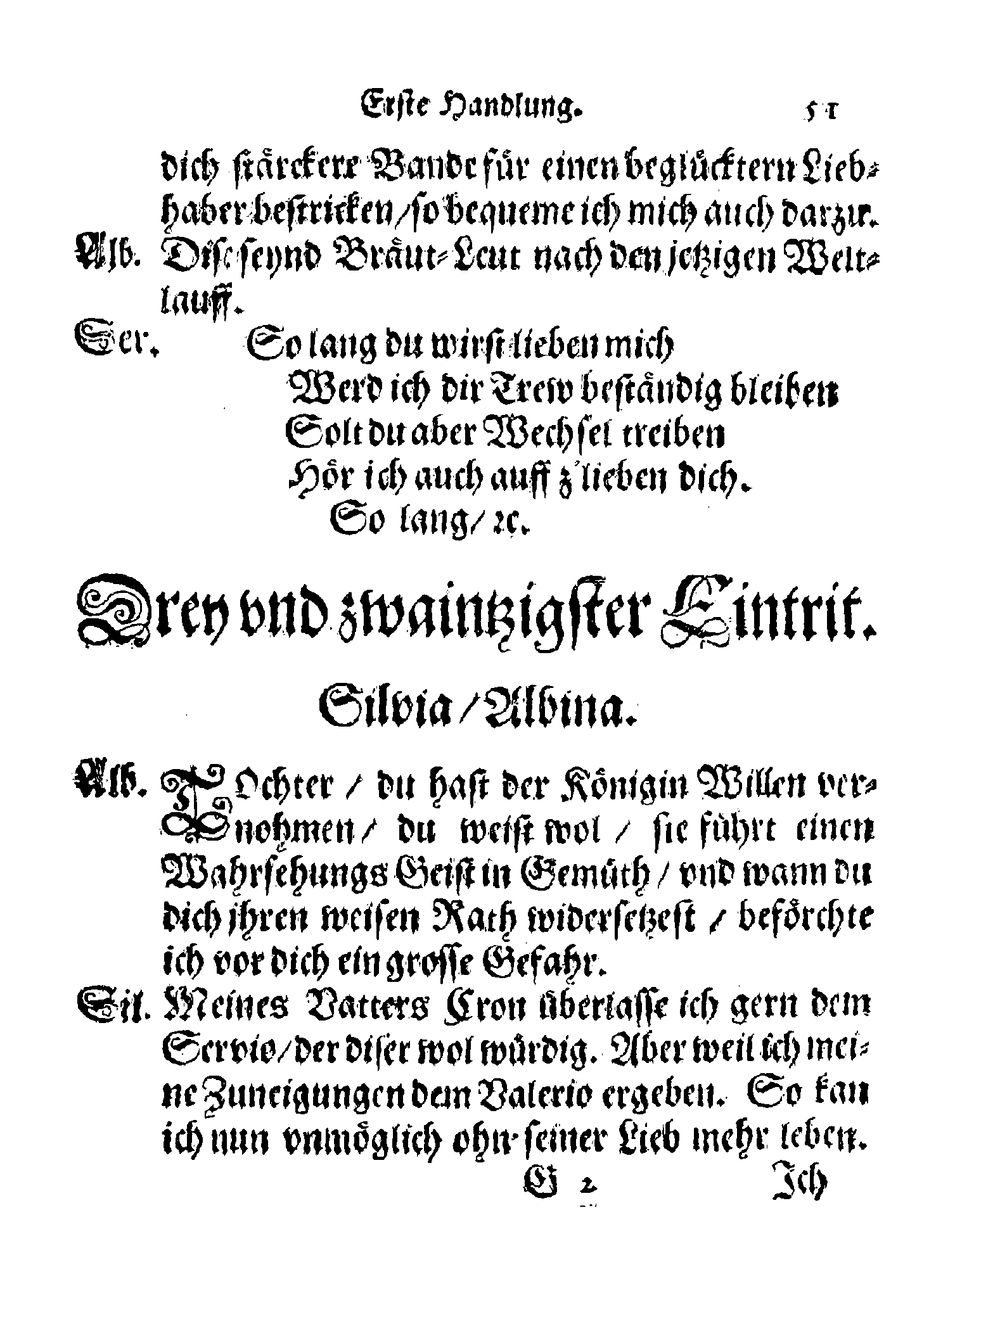 Erste Handlung. 51
dich stärckere Bande für einen beglücktern Lieb-
haber bestricken/so bequeme ich mich auch darzu.
Alb. Dise seynd Bräut-Leut nach den jetzigen Welt-
lauff.
Ser. So lang du wirst lieben mich
Werd ich dir Trew beständig bleiben
Solt du aber Wechsel treiben
Hör ich auch auff z'lieben dich.
So lang/ ꝛc.
Drey vnd zwaintzigster Eintrit.
Silvia / Albina.
Alb. TOchter / du hast der Königin Willen ver-
nohmen/ du weist wol / sie führt einen
Wahrsehungs Geist in Gemüth / vnd wann du
dich jhren weisen Rath widersetzest / beförchte
ich vor dich ein grosse Gefahr.
Sil. Meines Vatters Cron überlasse ich gern dem
Servio/der diser wol würdig. Aber weil ich mei-
ne Zuneigungen dem Valerio ergeben. So kan
ich nun vnmöglich ohn seiner Lieb mehr leben.
G 2 Ich